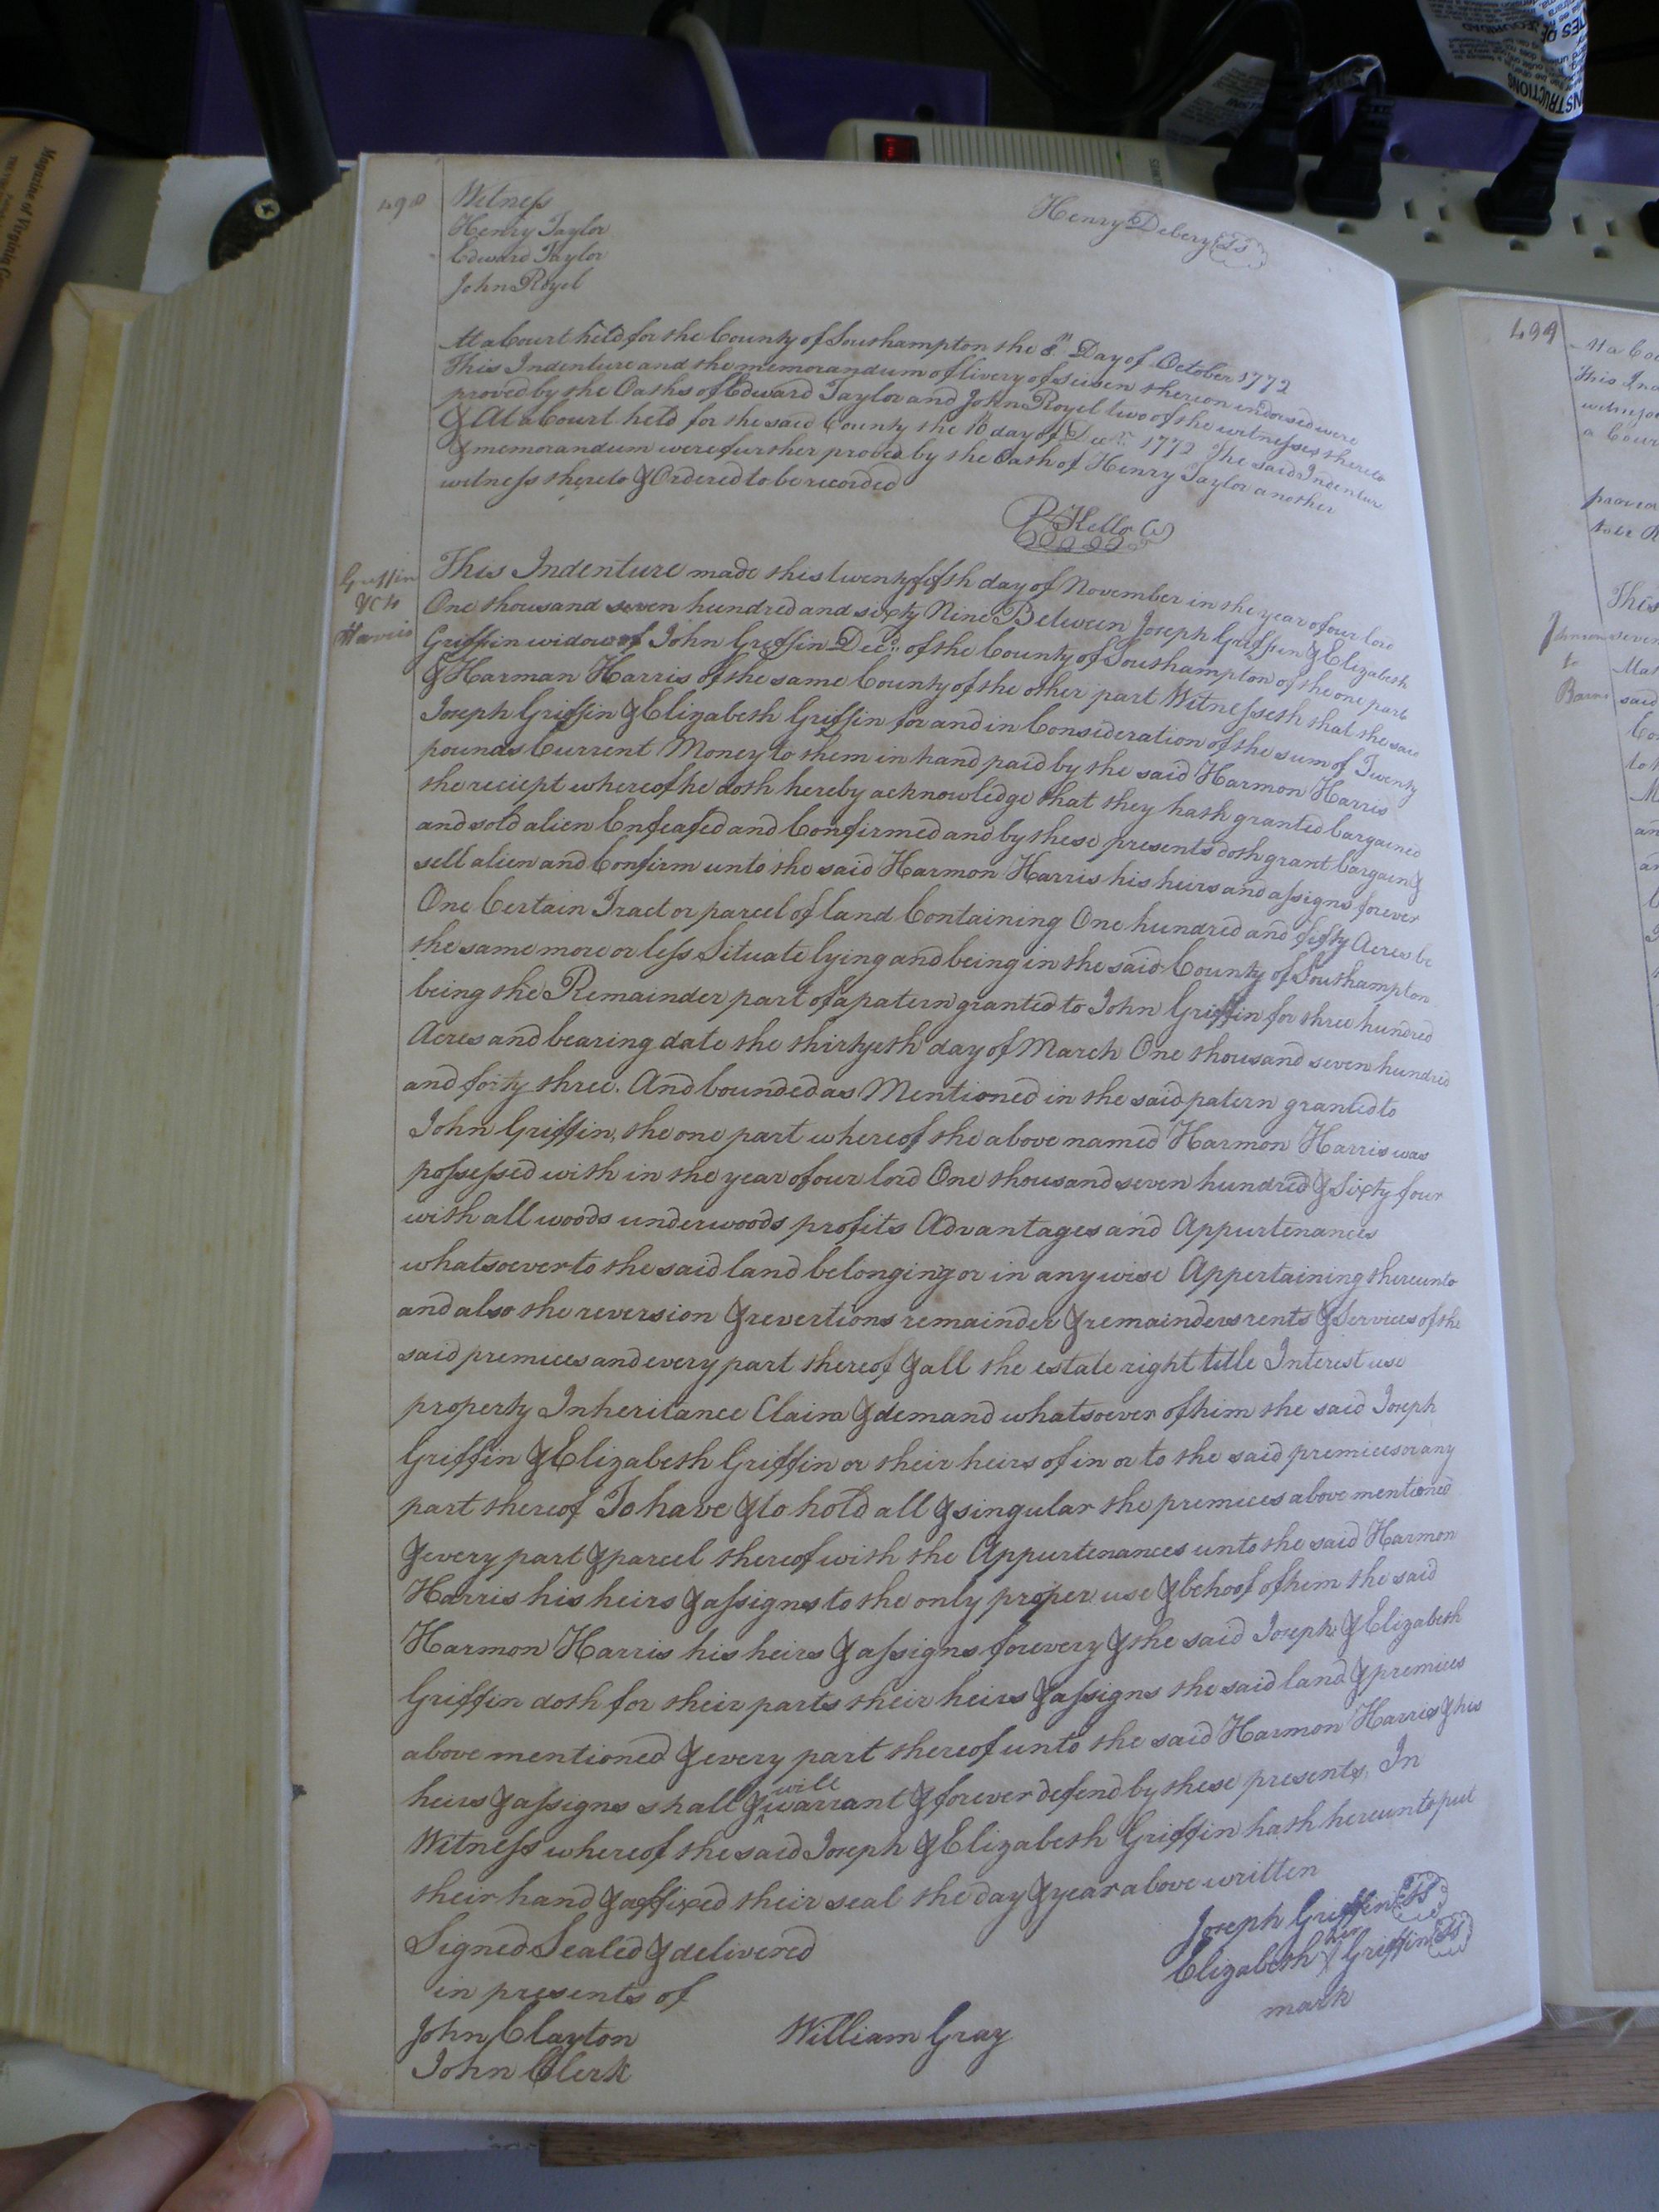 Magazine of Virginia
INSTRUCTIONS
498
Witness
Henry Taylor
Edward Taylor
John Royel
Henry Debery LS
At a Court held for the County of Southampton the 8th Day of October 1772
This Indenture and the memorandum of livery of seisen thereon endorsed were
proved by the Oaths of Edward Taylor and John Royel two of the witnesses thereto
& At a Court held for the said County the 10 day of Decr. 1772 The said Indenture
& memorandum were further proved by the Oath of Henry Taylor another
witness thereto & Ordered to be recorded
R Kello
Griffin
to
Harris
This Indenture made this twenty fifth day of November in the year of our lord
One thousand seven hundred and sixty Nine Between Joseph Griffin & Elizabeth
Griffin widow of John Griffin Decd. of the County of Southampton of the one part
& Harman Harris of the same County of the other part Witnesseth that the said
Joseph Griffin & Elizabeth Griffin for and in Consideration of the sum of Twenty
pounds Current Money to them in hand paid by the said Harmon Harris
the reciept whereof he doth hereby acknowledge that they hath granted bargained
and sold alien Enfeafed and Confirmed and by these presents doth grant bargain &
sell alien and Confirm unto the said Harmon Harris his heirs and assigns forever
One Certain Tract or parcel of land Containing One hundred and fifty Acres be
the same more or less Situate lying and being in the said County of Southampton
being the Remainder part of a patern granted to John Griffin for three hundred
Acres and bearing date the thirtyeth day of March One thousand seven hundred
and forty three. And bounded as Mentioned in the said patern granted to
John Griffin, the one part whereof the above named Harmon Harris was
possessed with in the year of our lord One thousand seven hundred & Sixty four
with all woods underwoods profits Advantages and Appurtenances
whatsoever to the said land belonging or in any wise Appertaining thereunto
and also the reversion & revertions remainder & remainders rents & Services of the
said premices and every part thereof & all the estate right title Interest use
property Inheritance Claim & demand whatsoever of him the said Joseph
Griffin & Elizabeth Griffin or their heirs of in or to the said premices or any
part thereof To have & to hold all & singular the premices above mentioned
& every part & parcel thereof with the Appurtenances unto the said Harmon
Harris his heirs & assigns to the only proper use & behoof of him the said
Harmon Harris his heirs & assigns forevery & the said Joseph & Elizabeth
Griffin doth for their parts their heirs & assigns the said land & premices
above mentioned & every part thereof unto the said Harmon Harris & his
heirs & assigns shall & will warrant & forever defend by these presents, In
Witness whereof the said Joseph & Elizabeth Griffin hath hereunto put
their hand & affixed their seal the day & year above written
Signed Sealed & delivered
in presents of
John Clayton
John Clerk
William Gray
Joseph Griffin LS
her
Elizabeth X Griffin LS
mark
499
At a Cou
This Ind
witness
a Cour
proved
This
to
said